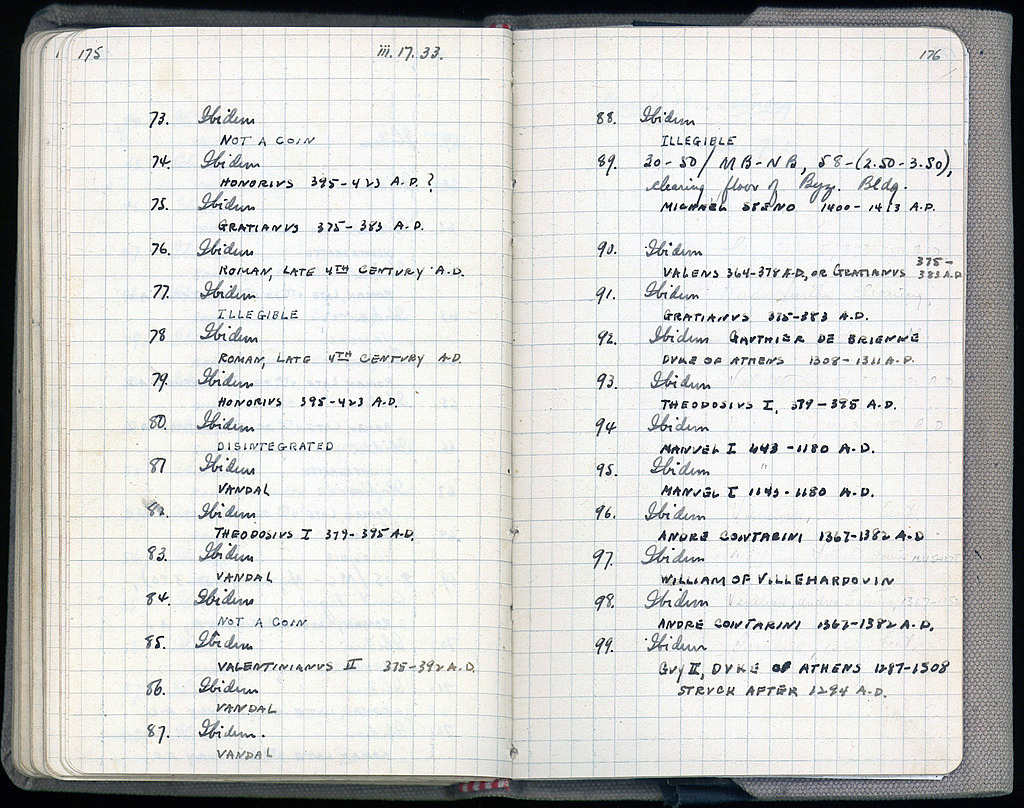 175
iii. 17. 33.
73. Ibidem
NOT A COIN
74. Ibidem
HONORIVS 395-423 A.D.?
75. Ibidem
GRATIANVS 375-383 A.D.
76. Ibidem
ROMAN, LATE 4TH CENTURY A.D.
77. Ibidem
ILLEGIBLE
78 Ibidem
ROMAN, LATE 4TH CENTURY A.D.
79. Ibidem
HONORIVS 395-423 A.D.
80. Ibidem
DISINTEGRATED
81 Ibidem
VANDAL
82. Ibidem
THEODOSIVS I 379-395 A.D.
83. Ibidem
VANDAL
84. Ibidem
NOT A COIN
85. Ibidem
VALENTINIANVS II 375-392 A.D.
86. Ibidem
VANDAL
87. Ibidem.
VANDAL
176
88. Ibidem
ILLEGIBLE
89. 30-50 / MB-NB, 58-(2.50-3.50),
clearing floor of Byz. Bldg.
MICHAEL STENO 1400-1413 A.D.
90. Ibidem
VALENS 364-378 A.D, OR GRATIANVS 375-
383 A.D
91. Ibidem
GRATIANVS 375-383 A.D.
92. Ibidem GAUTHIER DE BRIENNE
DVKE OF ATHENS 1308-1311 A.D.
93. Ibidem
THEODOSIVS I, 379-395 A.D.
94 Ibidem
MANVEL I 1143-1180 A.D.
95. Ibidem "
MANVEL I 1143-1180 A.D.
96. Ibidem
ANDRE CONTARINI 1367-1382 A.D
97. Ibidem
WILLIAM OF VILLEHARDOVIN
98. Ibidem
ANDRE CONTARINI 1367-1382 A.D.
99. Ibidem
GUY II, DVKE OF ATHENS 1287-1308
STRVCK AFTER 1294 A.D.